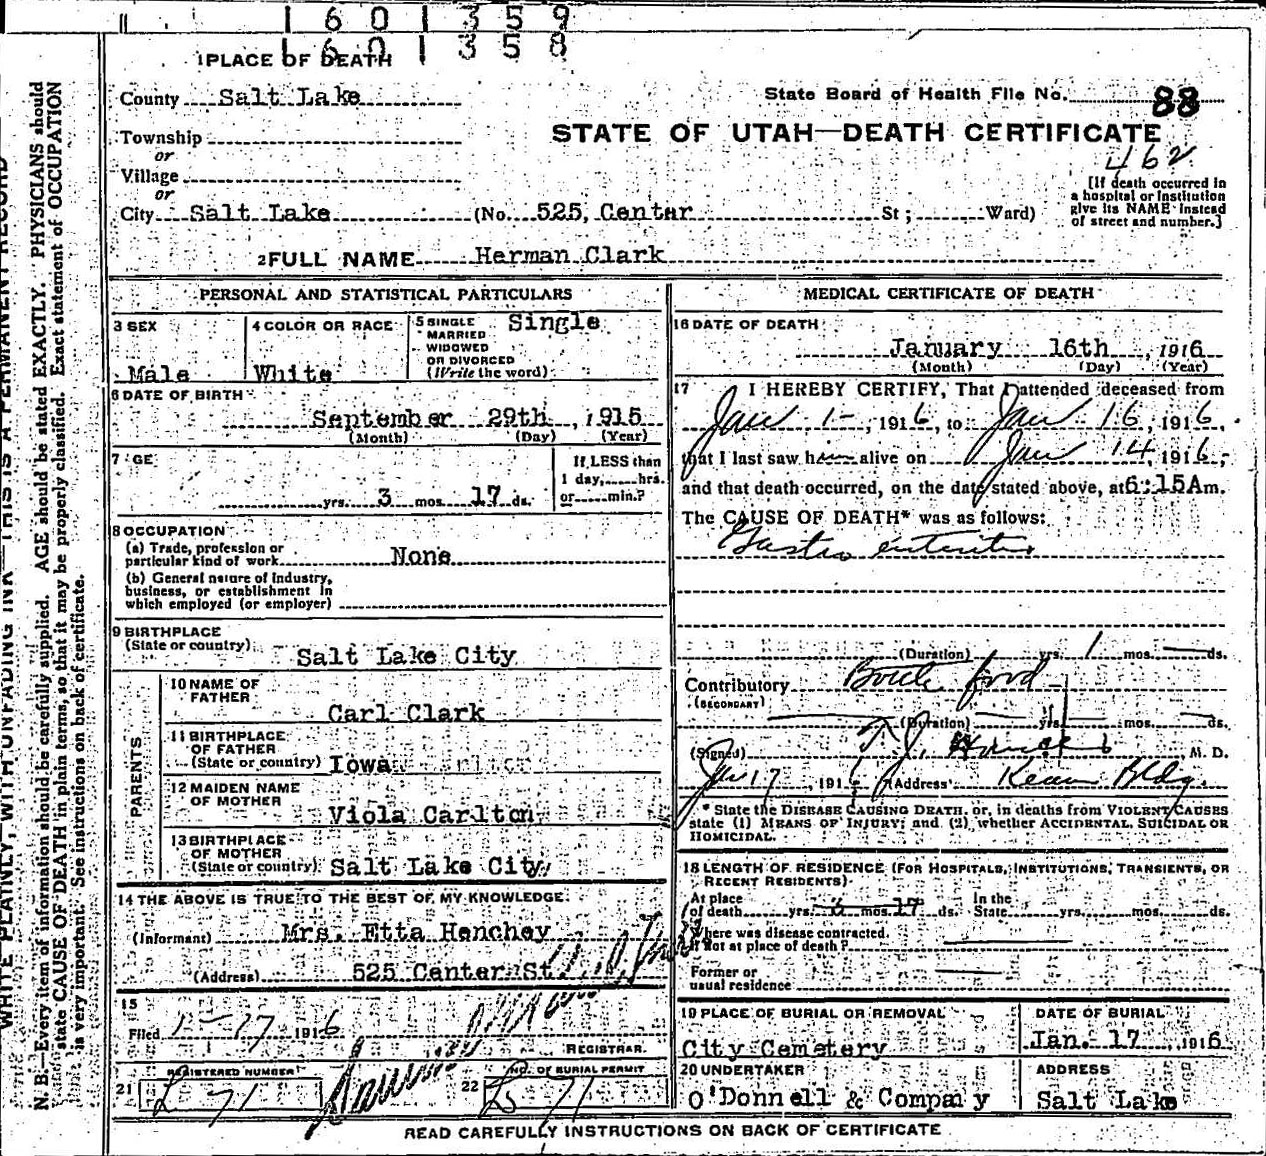 1 6 0 1 3 5 9
1 6 0 1 3 5 8
1 PLACE OF DEATH
County Salt Lake
State Board of Health File No. 88
Township
STATE OF UTAH—DEATH CERTIFICATE
or
462
Village
or
[If death occurred in a hospital or institution give its NAME instead of street and number.]
City Salt Lake (No. 525, Center St; Ward)
2 FULL NAME Herman Clark
PERSONAL AND STATISTICAL PARTICULARS
3 SEX Male
4 COLOR OR RACE White
5 SINGLE MARRIED WIDOWED OR DIVORCED (Write the word) Single
6 DATE OF BIRTH
September 29th, 1915
(Month) (Day) (Year)
7 AGE
yrs. 3 mos. 17 ds.
If LESS than 1 day, hrs. or min.?
8 OCCUPATION
(a) Trade, profession or particular kind of work None
(b) General nature of industry, business, or establishment in which employed (or employer)
9 BIRTHPLACE
(State or country) Salt Lake City
PARENTS
10 NAME OF FATHER Carl Clark
11 BIRTHPLACE OF FATHER
(State or country) Iowa
12 MAIDEN NAME OF MOTHER Viola Carlton
13 BIRTHPLACE OF MOTHER
(State or country) Salt Lake City
14 THE ABOVE IS TRUE TO THE BEST OF MY KNOWLEDGE.
(Informant) Mrs. Etta Henchey
(Address) 525 Center St
15
Filed 1-17 1916
REGISTRAR.
REGISTERED NUMBER
21 L 71
NO. OF BURIAL PERMIT
22 L 71
MEDICAL CERTIFICATE OF DEATH
16 DATE OF DEATH
January 16th, 1916
(Month) (Day) (Year)
17 I HEREBY CERTIFY, That I attended deceased from
Jan 1-, 1916, to Jan 16, 1916,
that I last saw him alive on Jan 14, 1916,
and that death occurred, on the date stated above, at 6:15A m.
The CAUSE OF DEATH* was as follows:
Gastro enteritis
(Duration) yrs. 1 mos. ds.
Contributory Bottle food
(SECONDARY)
(Duration) yrs. mos. ds.
(Signed) T. J. M. D.
Jan 17, 1916 (Address) Kearn Bldg.
* State the DISEASE CAUSING DEATH, or, in deaths from VIOLENT CAUSES
state (1) MEANS OF INJURY; and (2) whether ACCIDENTAL, SUICIDAL OR
HOMICIDAL.
18 LENGTH OF RESIDENCE (FOR HOSPITALS, INSTITUTIONS, TRANSIENTS, OR
RECENT RESIDENTS)
At place of death yrs. 3 mos. 17 ds. In the State yrs. mos. ds.
Where was disease contracted,
If not at place of death?
Former or usual residence
19 PLACE OF BURIAL OR REMOVAL
City Cemetery
DATE OF BURIAL
Jan. 17, 1916
20 UNDERTAKER
O'Donnell & Company
ADDRESS
Salt Lake
READ CAREFULLY INSTRUCTIONS ON BACK OF CERTIFICATE
WRITE PLAINLY, WITH UNFADING INK—THIS IS A PERMANENT RECORD
N. B.—Every item of information should be carefully supplied. AGE should be stated EXACTLY. PHYSICIANS should
state CAUSE OF DEATH in plain terms, so that it may be properly classified. Exact statement of OCCUPATION
is very important. See instructions on back of certificate.